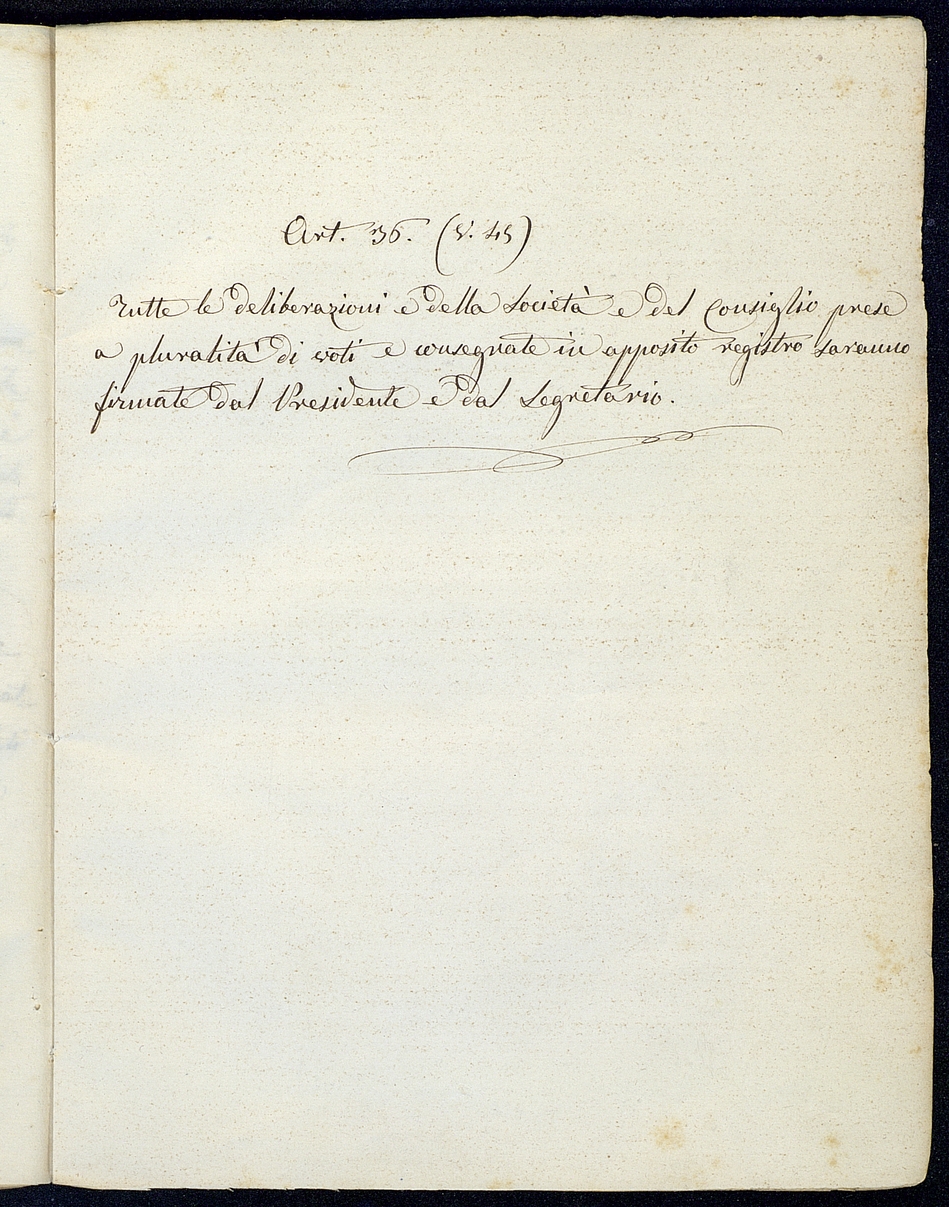 Art. 36. (V. 45)
Tutte le deliberazioni e della Società e del Consiglio prese
a pluralità di voti e consegnate in apposito registro saranno
firmate dal Presidente e dal Segretario.